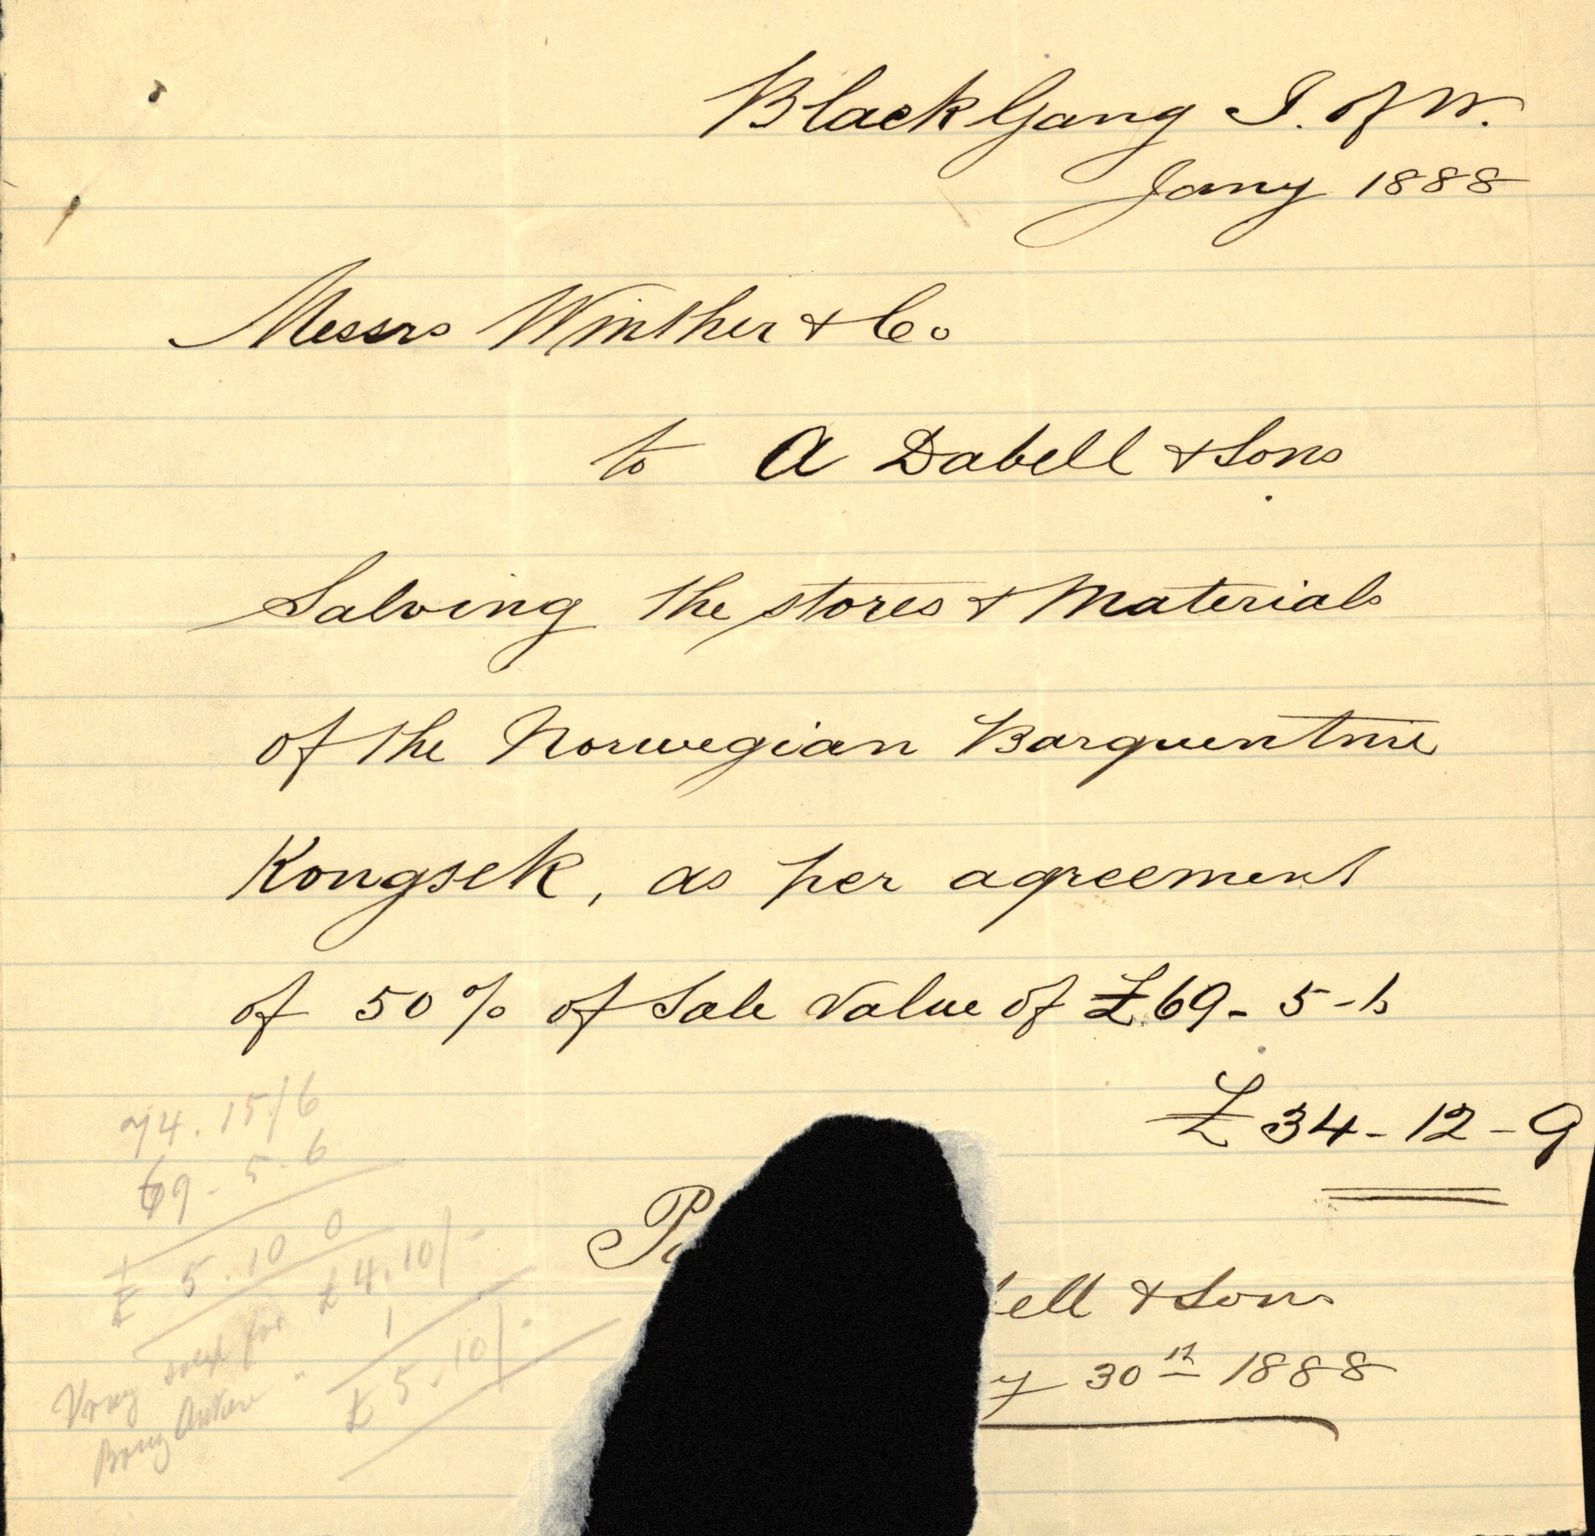 Black Gang I. of W.
Jany 1888
Messrs Winther & Co
to A Dabell & Sons
Salving the stores & Materials
of the Norwegian Barquentine
Kongsek, as per agreement
of 50% of Sale Value of £69-5-6
£34-12-9
ell & Sons
y 30th 1888
74.15/6
69-5.6
£ 5.10 0
Vrag solgt for £4.10/-
1
£5.10/-